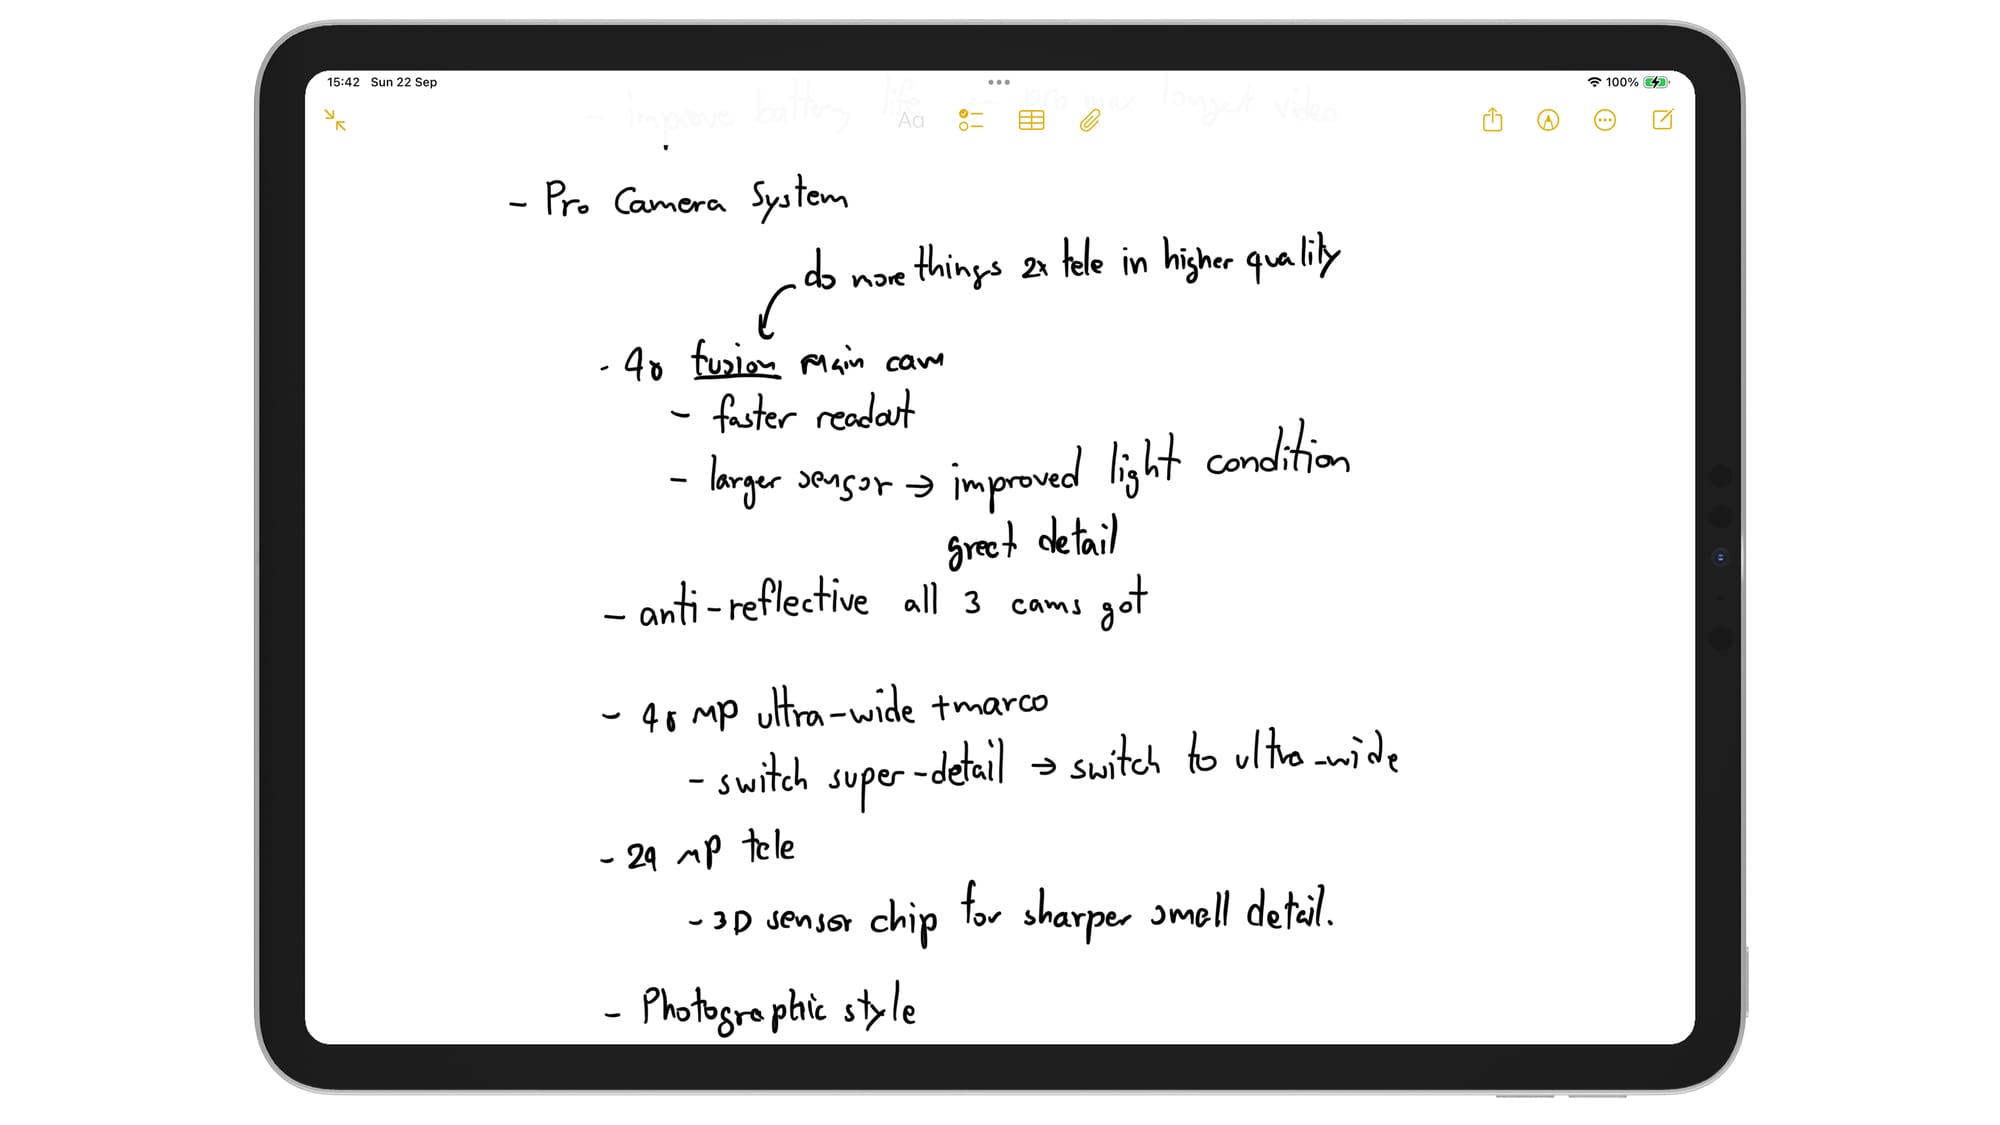 15:42 Sun 22 Sep
100%
- improve battery life pro max longest video
Aa
- Pro Camera System
do more things 2x tele in higher quality
- 48 fusion main cam
- faster readout
- larger sensor → improved light condition
great detail
- anti-reflective all 3 cams got
- 48 MP ultra-wide +marco
- switch super-detail → switch to ultra-wide
- 24 MP tele
- 3D sensor chip for sharper small detail.
- Photographic style